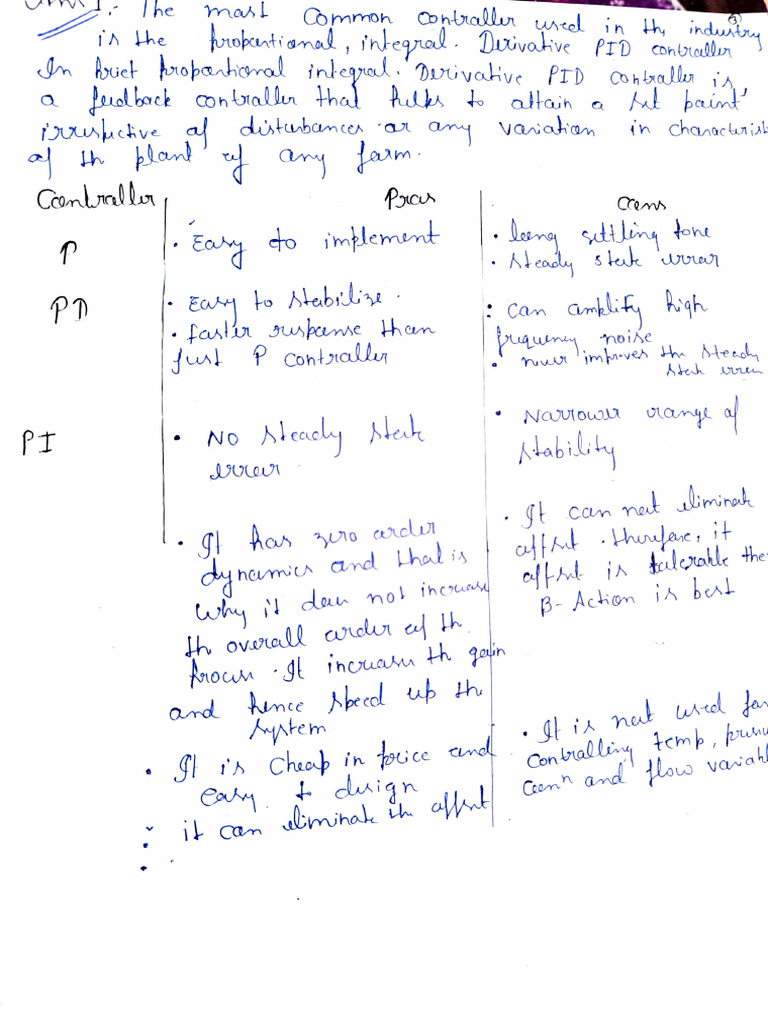 Unit 1. The most Common controller used in the industry
is the proportional, integral. Derivative PID controller
In brief proportional integral. Derivative PID controller is,
a feedback controller that helps to attain a set point
irrespective of disturbances or any variation in characteris
of th plant of any form.
Controller Pros Cons
P
• Easy to implement
• long settling tone
• steady state error
PD
• Easy to stabilize.
• faster response than
just P controller
: can amplify high
frequency noise
• never improves the steady
state error
PI
• NO steady state
error
• Narrower range of
stability
• It has zero order
dynamics and that is
why it does not increase
th overall order of th
process. It increases th gain
and hence speed up the
system
• It can not eliminate
offset. therefore, it
offset is tolerable the
B- Action is best
• It is cheap in price and
easy to design
it can eliminate th offset
• It is not used for
controlling temp,
conⁿ and flow variabl